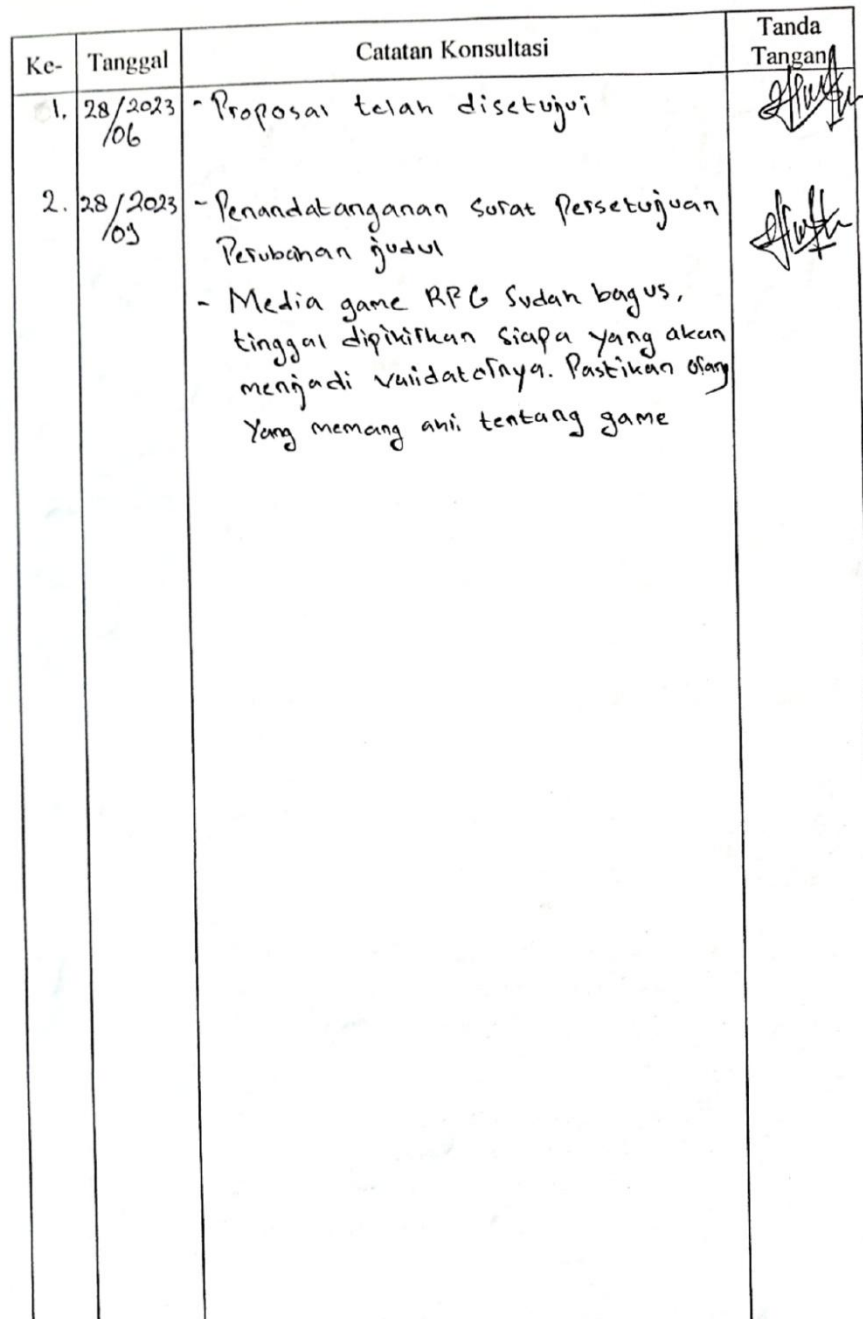 Ke- Tanggal Catatan Konsultasi Tanda Tangan
1. 28/2023 - Proposal telah disetujui
/06
2. 28/2023 - Penandatanganan Surat Persetujuan
/09 Perubahan judul
- Media game RPG Sudah bagus,
tinggal dipikirkan siapa yang akan
menjadi validatornya. Pastikan orang
Yang memang ahli tentang game